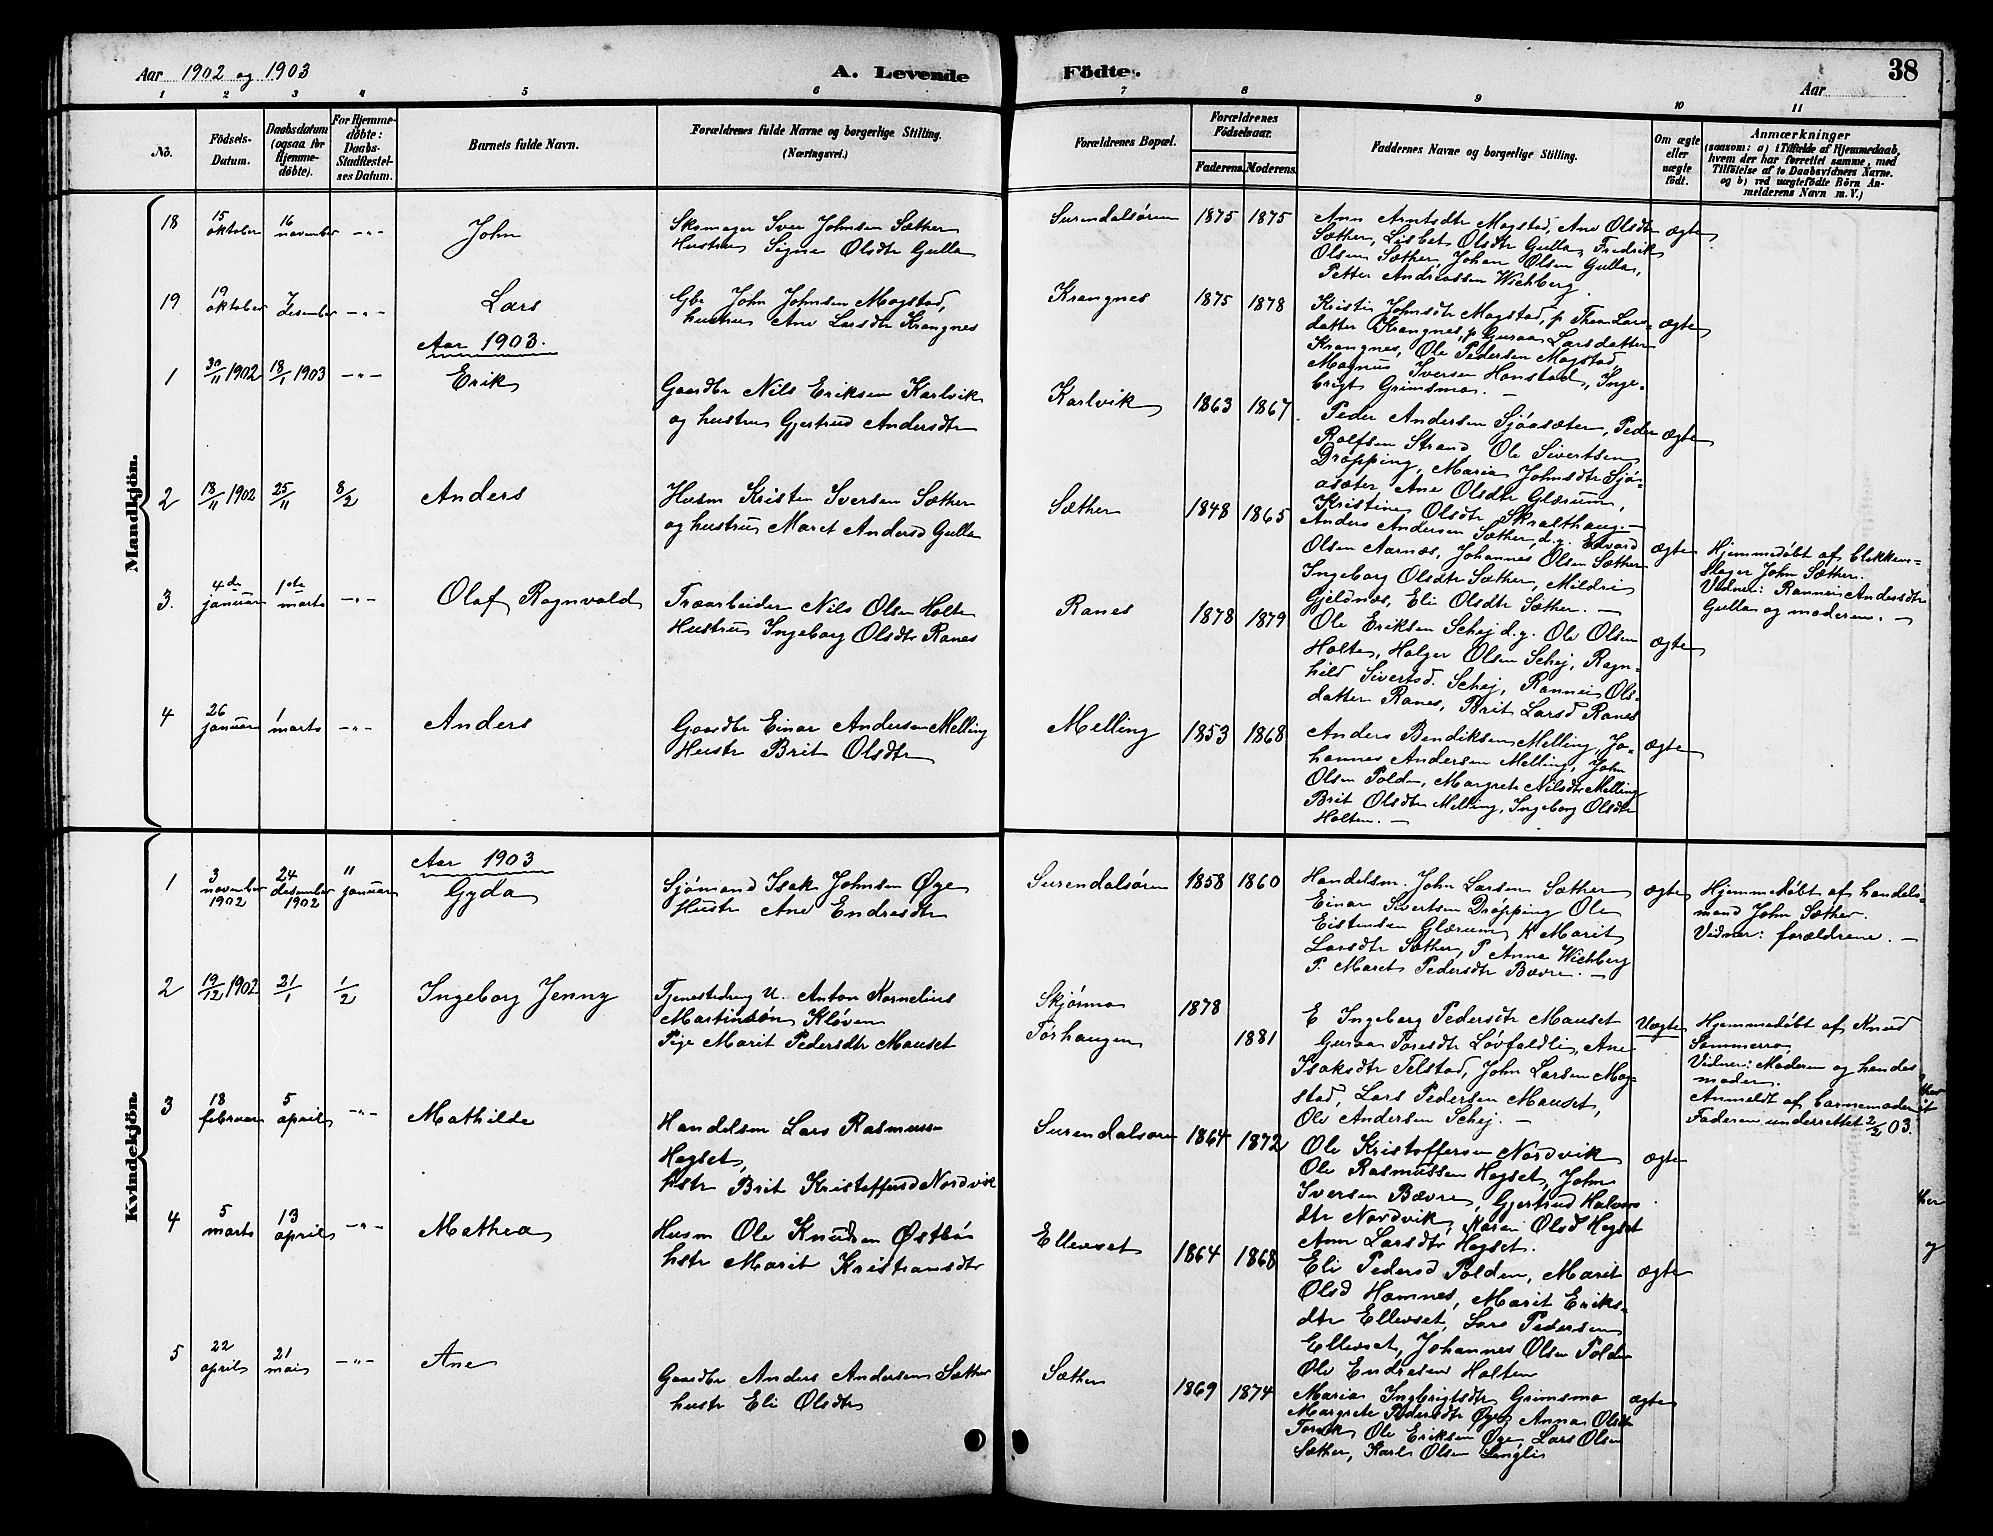 Aar 1902 og 1903
A. Levende Födte.
Aar
38
1 2 3 4 5 6 7 8 9 10 11
No.
Födsels-
Datum.
Daabsdatum
(ogsaa for
Hjemme-
döbte).
For Hjemme-
döbte:
Daabs-
Stadfestel-
ses Datum.
Barnets fulde Navn.
Forældrenes fulde Navne og borgerlige Stilling.
(Næringsvei.)
Forældrenes Bopæl.
Forældrenes
Födselsaar.
Faderens. Moderens.
Faddernes Navne og borgerlige Stilling.
Om ægte
eller
uægte
födt.
Anmærkninger
(saasom: a) i Tilfælde af Hjemmedaab,
hvem der har forrettet samme, med
Tilföielse af to Daabsvidners Navne.
og b) ved uægtefödte Börn An-
melderens Navn m. V.)
Mandkjön.
18
15
oktober
16
november
-"-
John
Skomager Sver Johnsen Sæther
Hustru Signe Olsdtr Gulla
Surendalsøren
1875 1875
Ane Arntsdtr Mogstad, Ane Olsdtr
Sæther, Lisbet Olsdtr Gulla, Fredrik
Olsen Sæther, Johan Olsen Gulla,
Petter Andreassen Wichberg
ægte
19
19
oktober
7
desember
-"-
Lars
Gbr John Johnsen Mogstad,
hustru Ane Larsdtr Krangnes
Krangnes
1875 1878
Kristin Johnsdtr Mogstad, p Thea Lars-
datter Krangnes, p Guraa Larsdatter
Krangnes, Ole Pedersen Mogstad
Magnus Sversen Honstad, Inge-
brigt Grimsmo. -
ægte
Aar 1903.
1
30/11 1902
18/1 1903
-"-
Erik
Gaardbr Nils Eriksen Karlvik
og hustru Gjertrud Andersdtr
Karlvik
1863 1867
Peder Andersen Sjøasæter, Peder
Rolfsen Strand, Ole Sivertsen
Drøpping, Maria Johnsdtr Sjø-
asæter Ane Olsdtr Glærum,
Kristine Olsdtr Skralthaug. -
ægte
2
18/11 1902
25/11
8/2
Anders
Husm Kristen Sversen Sæther
og hustru Maret Andersd Gulla
Sæther
1848 1865
Anders Andersen Sæther, d.y. Edvard
Olsen Aarnæs, Johannes Olsen Sæther
Ingeborg Olsdtr Sæther, Mildrei
Gjeldnæs, Eli Olsdtr Sæther. -
ægte
Hjemmedøbt af blikken-
slager John Sæther.
Vidner: Rannei Andersdtr
Gulla og moderen. -
3.
4de
januar
1ste
marts
-"-
Olaf Ragnvald
Træarbeider Nils Olsen Holte
Hustru Ingeborg Olsdtr Ranes
Ranes
1878 1879
Ole Eriksen Schej d.y. Ole Olsen
Holten, Holger Olsen Schej, Ragn-
hild Sivertsd. Schej, Rannei Ols-
datter Ranes, Brit Larsd Ranes
ægte
4
26
januar
1
marts
-"-
Anders
Gaardbr Einar Andersen Melling
Hustr Brit Olsdtr
Melling
1853 1868
Anders Bendiksen Melling, Jo-
hannes Andersen Melling, John
Olsen Polden, Margrete Nilsdtr Melling
Brit Olsdtr Melling, Ingeborg Olsdtr
Holten. -
ægte
Kvindekjön.
Aar 1903
1
3
november
1902
24
desember
1902
11
januar
Gyda
Sjømand Isak Johnsen Øye
Hustr Ane Endresdtr
Surendalsøren
1858 1860
Handelsm. John Larsen Sæther
Einar Sivertsen Drøpping Ole
Eistensen Glærum K Marit
Larsdtr Sæther, P Anna Wichberg
P. Maret Pedersdtr Bævre. -
ægte
Hjemmedøbt af handels-
mand John Sæther.
Vidner: forældrene. -
2
19/12 1902
21/1
1/2
Ingeborg Jenny
Tjenestedreng U. Anton Kornelius
Martinsøn Kløven
Pige Marit Pedersdtr Mauset
Skjørmo
Torhaugen
1878
1881
E Ingeborg Pedersdtr Mauset
Guraa Toresdtr Løvfaldli, Ane
Isaksdtr Telstad, John Larsen Mog-
stad, Lars Pedersen Mauset,
Ole Andersen Schej. -
Uægte
Hjemmedøbt af Knud
Sommerro,
Vidner: Moderen og hendes
moder.
Anmeldt af barnemoderen
Faderen underrettet 2/2 03.
3
18
februar
5
april
-"-
Mathilde
Handelsm Lars Rasmuss-
Hegset,
hstr Brit Kristoffersd Nordvik
Surendalsøren
1864 1872
Ole Kristoffersen Nordvik
Ole Rasmussen Hegset, John
Iversen Bævre, Gjertrud Halvors
dtr Nordvik, Karen Olsd Hegset
Ane Larsdtr Hegset.
ægte
4
5
marts
13
april
-"-
Mathea
Husm Ole Knudsen Østbø
hstr Marit Kristiansdtr
Ellevset
1864 1868
Eli Pedersd Polden, Marit
Olsd Hamnes, Marit Eriks-
dtr Ellevset, Lars Pedersen
Ellevset, Johannes Olsen Polden
Ole Endresen Holten
ægte
5
22
april
21
mai
-"-
Ane
Gaardbr Anders Andersen Sæther
hustr Eli Olsdtr
Sæther
1869 1874
Maria Ingbrigtsdtr Grimsmo
Margrete Pedersdtr Øye, Anna Olsdtr
Torvik, Ole Eriksen Øye, Lars Olsen
Sæther, Karl Olsen Lengli
ægte